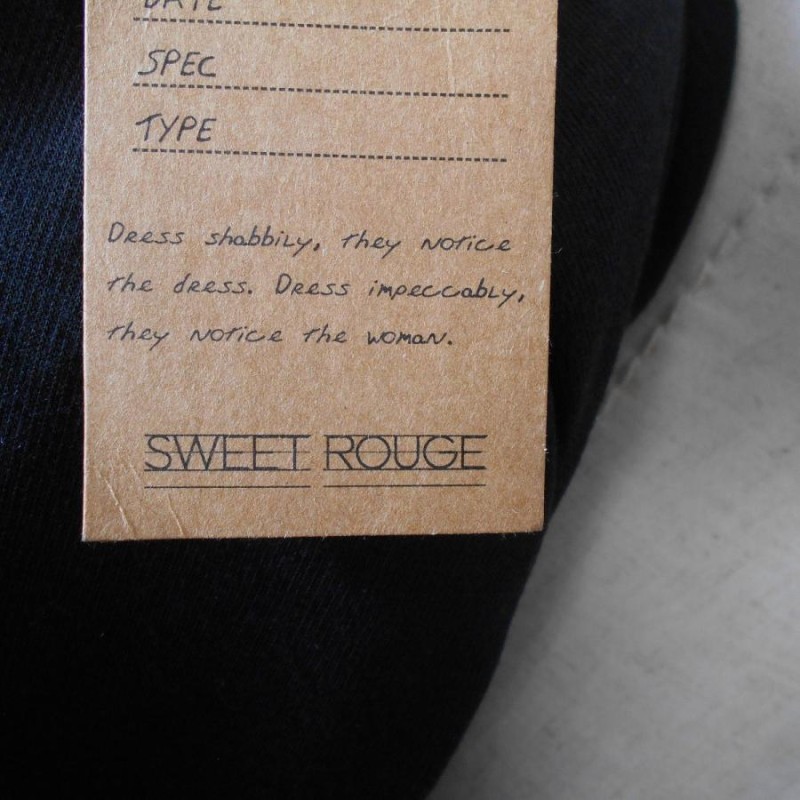 DATE
SPEC
TYPE
Dress shabbily, they notice
the dress. Dress impeccably,
they notice the woman.
SWEET ROUGE